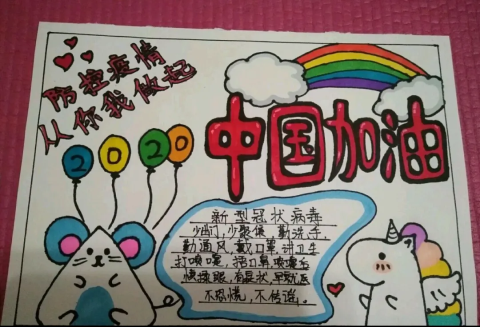 防控疫情
从你我做起
中国加油
2020
新型冠状病毒
少出门,少聚集,勤洗手,
勤通风,戴口罩,讲卫生
打喷嚏,捂口鼻,喷嚏后
慎揉眼,有症状,早就医
不恐慌,不传谣。